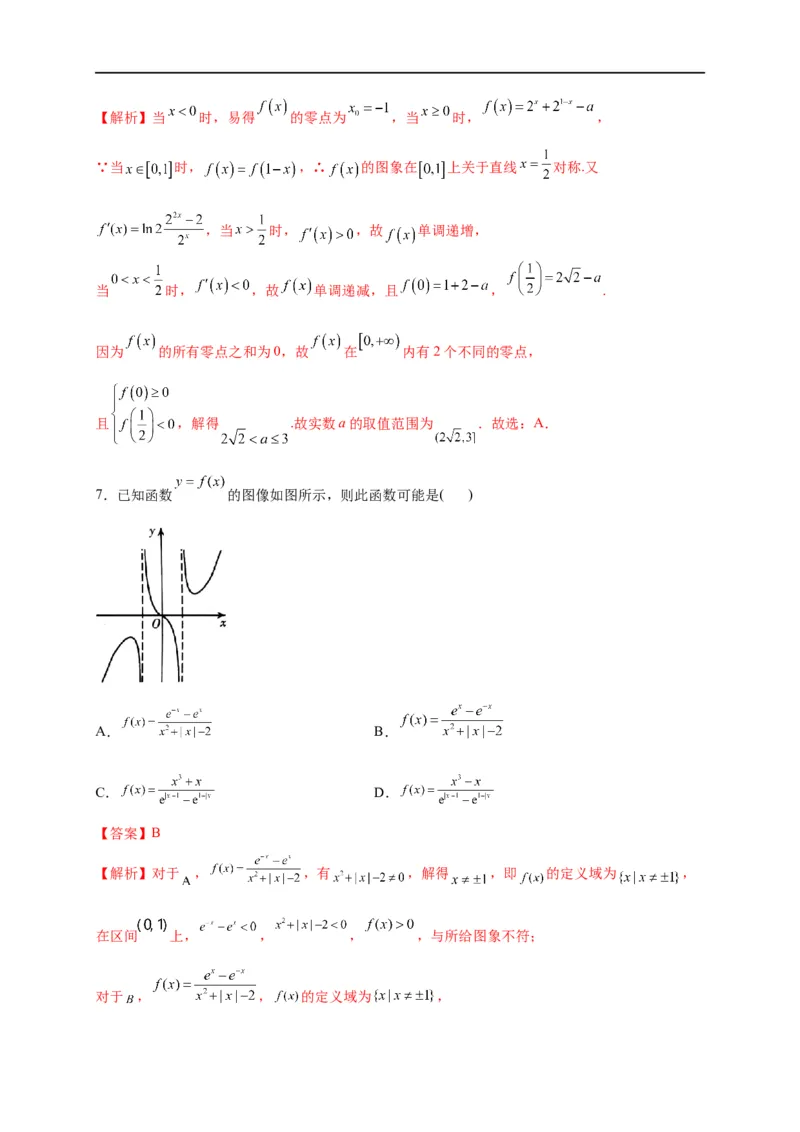 【解析】当 x<0 时，易得 f(x) 的零点为 x₀=−1 ，当 x≥0 时， f(x)=2ˣ+2¹⁻ˣ−a ，
∵当 x∈[0,1] 时， f(x)=f(1−x) ，∴ f(x) 的图象在 [0,1] 上关于直线 x=1/2 对称.又
f′(x)=ln2 (2²ˣ−2)/2ˣ ，当 x>1/2 时， f′(x)>0 ，故 f(x) 单调递增，
当 0<x<1/2 时， f′(x)<0 ，故 f(x) 单调递减，且 f(0)=1+2−a ， f(1/2)=2√2−a .
因为 f(x) 的所有零点之和为0，故 f(x) 在 [0,+∞) 内有2个不同的零点，
且 { f(0)≥0 f(1/2)<0 ，解得 2√2<a≤3 .故实数a的取值范围为 (2√2,3] ．故选：A．
7．已知函数 y=f(x) 的图像如图所示，则此函数可能是( )
y
O
x
A． f(x)=(e⁻ˣ−eˣ)/(x²+|x|−2) B． f(x)=(eˣ−e⁻ˣ)/(x²+|x|−2)
C． f(x)=(x³+x)/(e^(|x|−1)−e^(1−|x|)) D． f(x)=(x³−x)/(e^(|x|−1)−e^(1−|x|))
【答案】B
【解析】对于 A ， f(x)=(e⁻ˣ−eˣ)/(x²+|x|−2) ，有 x²+|x|−2≠0 ，解得 x≠±1 ，即 f(x) 的定义域为 {x|x≠±1} ，
在区间 (0,1) 上， e⁻ˣ−eˣ<0 ， x²+|x|−2<0 ， f(x)>0 ，与所给图象不符；
对于 B ， f(x)=(eˣ−e⁻ˣ)/(x²+|x|−2) ， f(x) 的定义域为 {x|x≠±1} ，